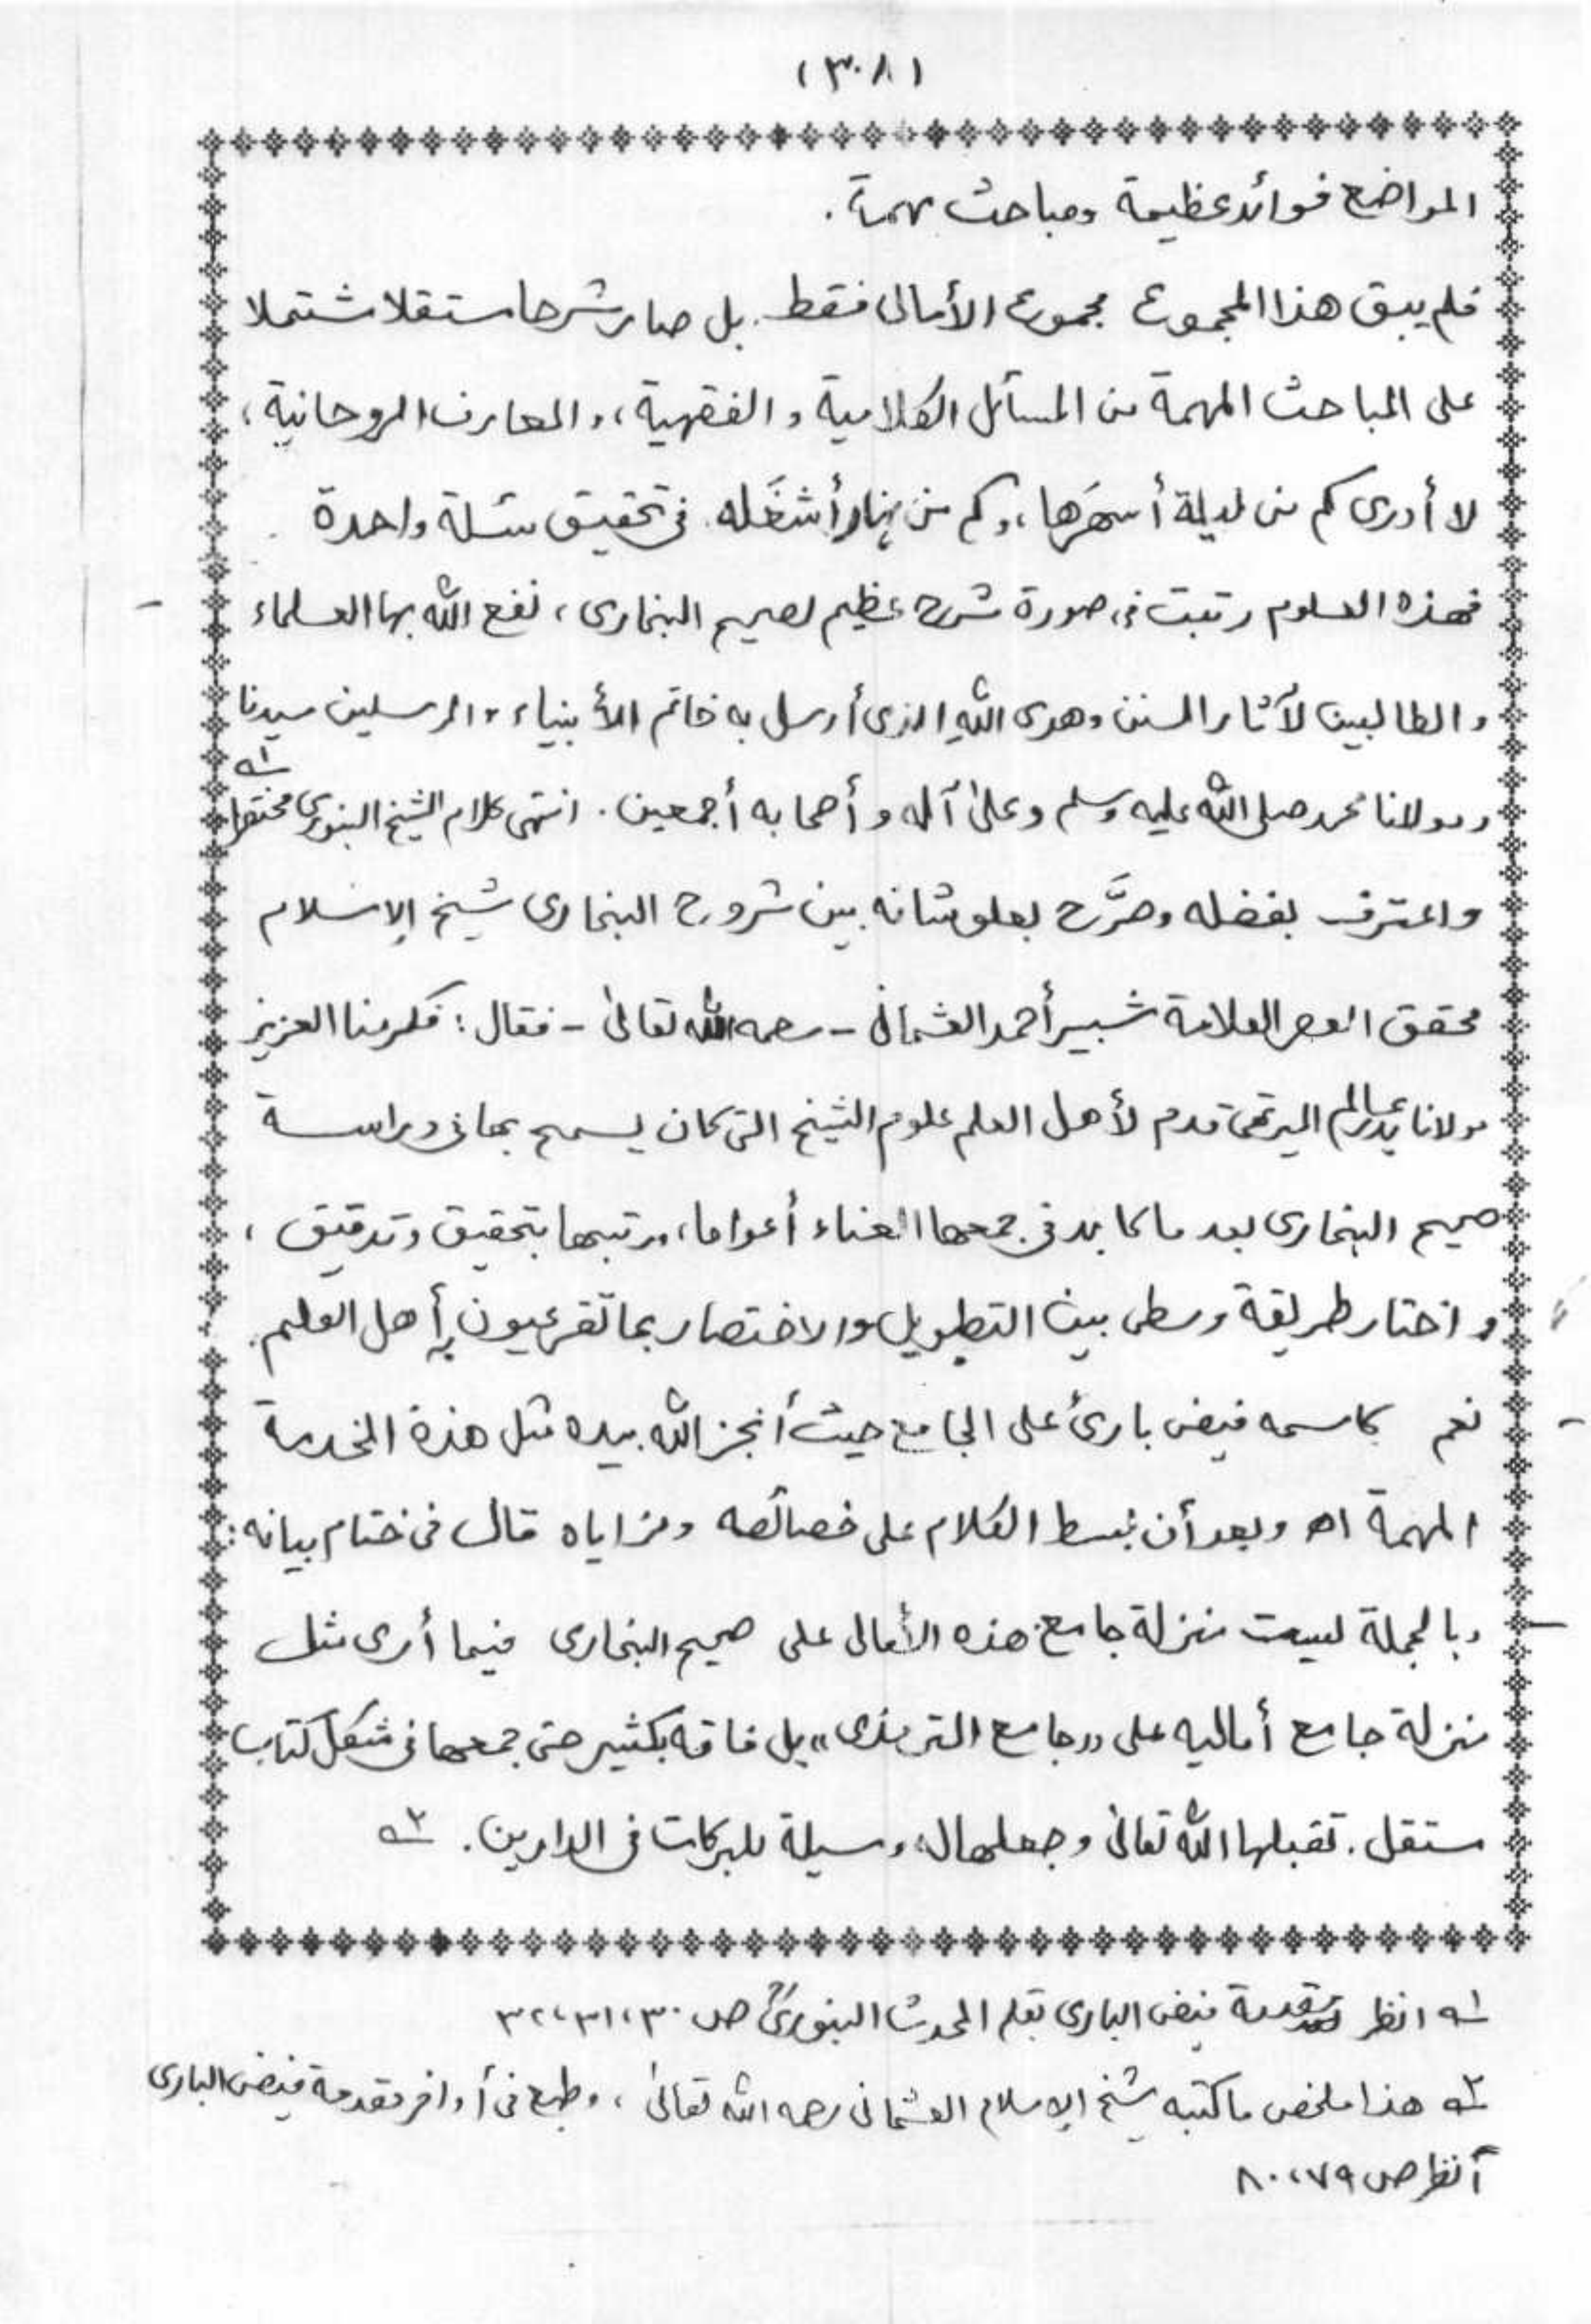 (٣٠٨)
المواضع فوائد عظيمة ومباحث مهمة.
فلم يبق هذا المجموع مجموع الأمالى فقط. بل صار شرحا مستقلا مشتملا
على المباحث المهمة من المسائل الكلامية والفقهية، والمعارف الروحانية،
لا أدرى كم من ليلة أسهرها، وكم من نهار أشغله فى تحقيق مسئلة واحدة
فهذه العلوم رتبت فى صورة شرح عظيم لصحيح البخارى، نفع الله بها العلماء
والطالبين لآثار السنن وهدى الله الذى أرسل به خاتم الأنبياء والمرسلين سيدنا
ومولانا محمد صلى الله عليه وسلم وعلى آله وأصحابه أجمعين. انتهى كلام الشيخ البنورى مختصرا ١ه
واعترف بفضله وصرَّح بعلو شانه بين شروح البخارى شيخ الإسلام
محقق العصر العلامة شبير أحمد العثمانى - رحمه الله تعالى - فقال: فكرمنا العزيز
مولانا بدر عالم الميرتهى قدم لأهل العلم علوم الشيخ التى كان يسمح بها فى دراسة
صحيح البخارى بعد ما كابد فى جمعها العناء أعواما، ورتبها بتحقيق وتدقيق،
واختار طريقة وسطى بين التطويل والاختصار بما تقر به عيون أهل العلم.
نعم كاسمه فيض بارئ على الجامع حيث أنجز الله بيده مثل هذة الخدمة
المهمة اه وبعد أن بسط الكلام على خصائصه ومزاياه قال فى ختام بيانه:
وبالجملة ليست منزلة جامع هذه الأمالى على صحيح البخارى فيما أرى مثل
منزلة جامع أماليه على «جامع الترمذى» بل فاقه بكثير حتى جمعها فى شكل كتاب
مستقل. تقبلها الله تعالى وجعلها له وسيلة للبركات فى الدارين. ٢ه
١ه انظر مقدمة فيض البارى بقلم المحدث البنورىؒ ص ٣٠،٣١،٣٢
٢ه هذا ملخص ما كتبه شيخ الإسلام العثمانى رحمه الله تعالى، وطبع فى أواخر مقدمة فيض البارى
انظر ص ٧٩،٨٠